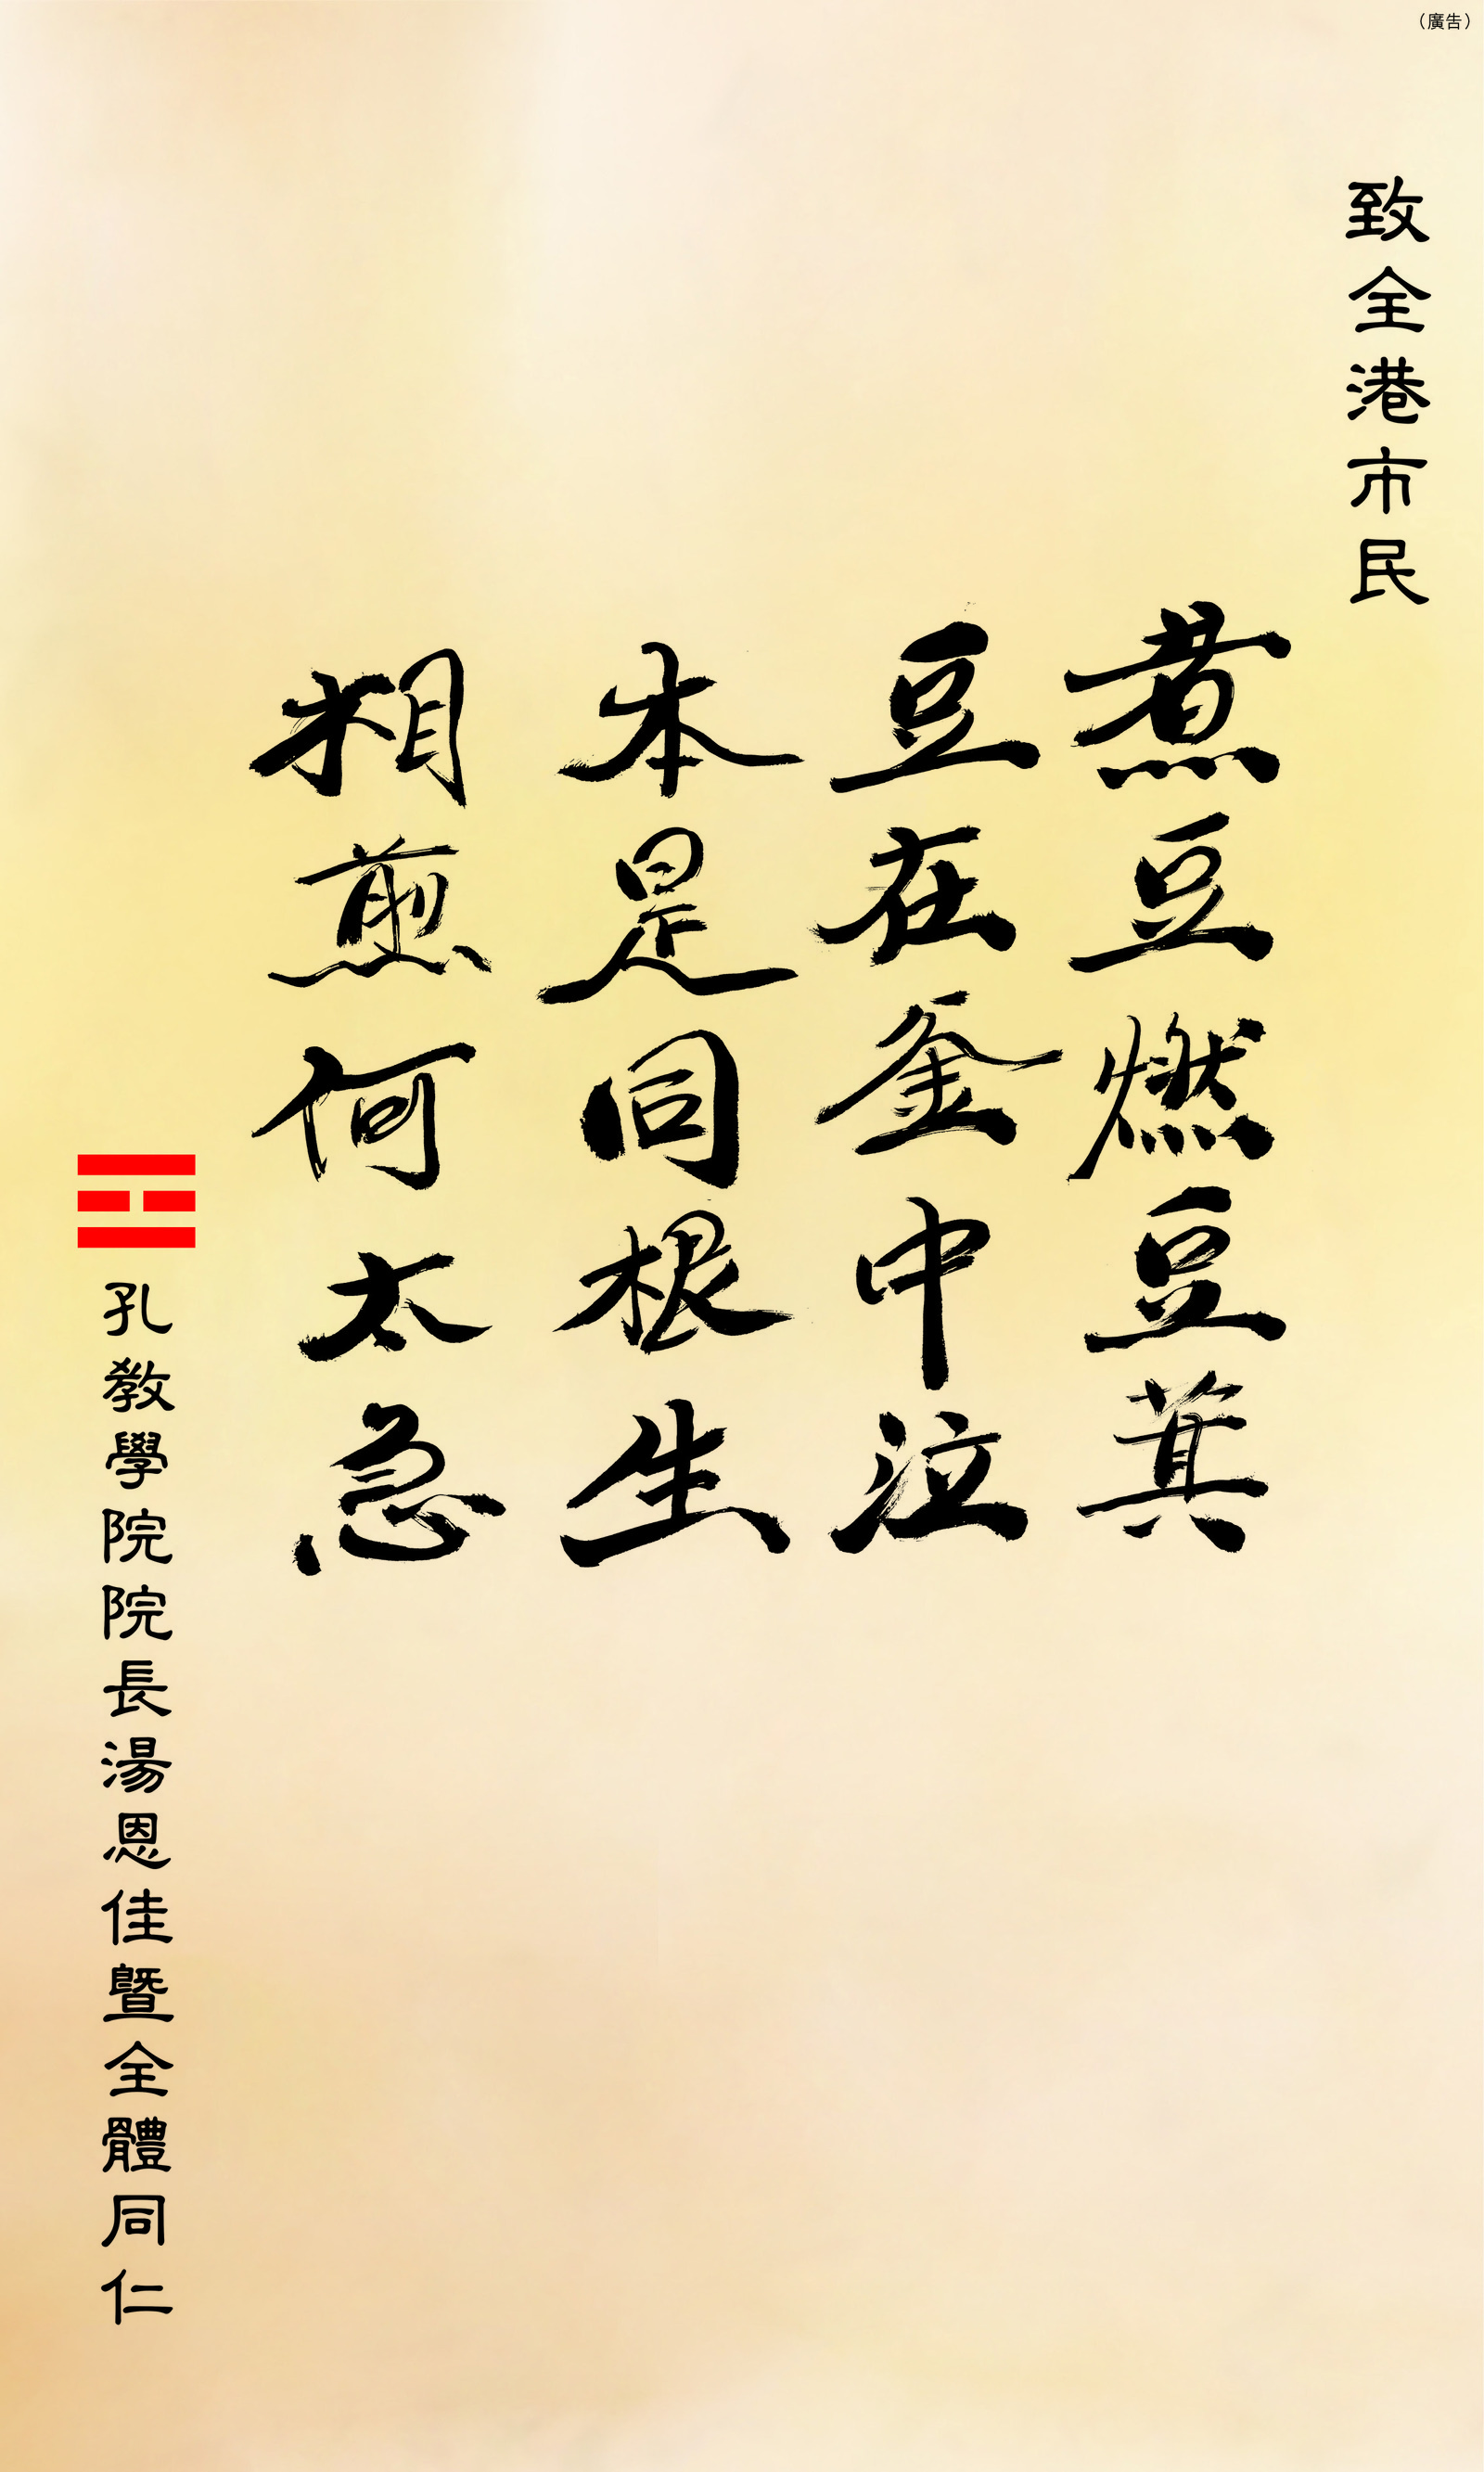 （廣告）
致全港市民
煮豆燃豆萁
豆在釜中泣
本是同根生
相煎何太急
孔教學院院長湯恩佳暨全體同仁